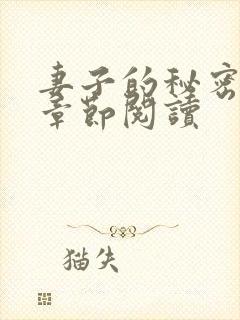 妻子的秘密
章節閱讀
猫失